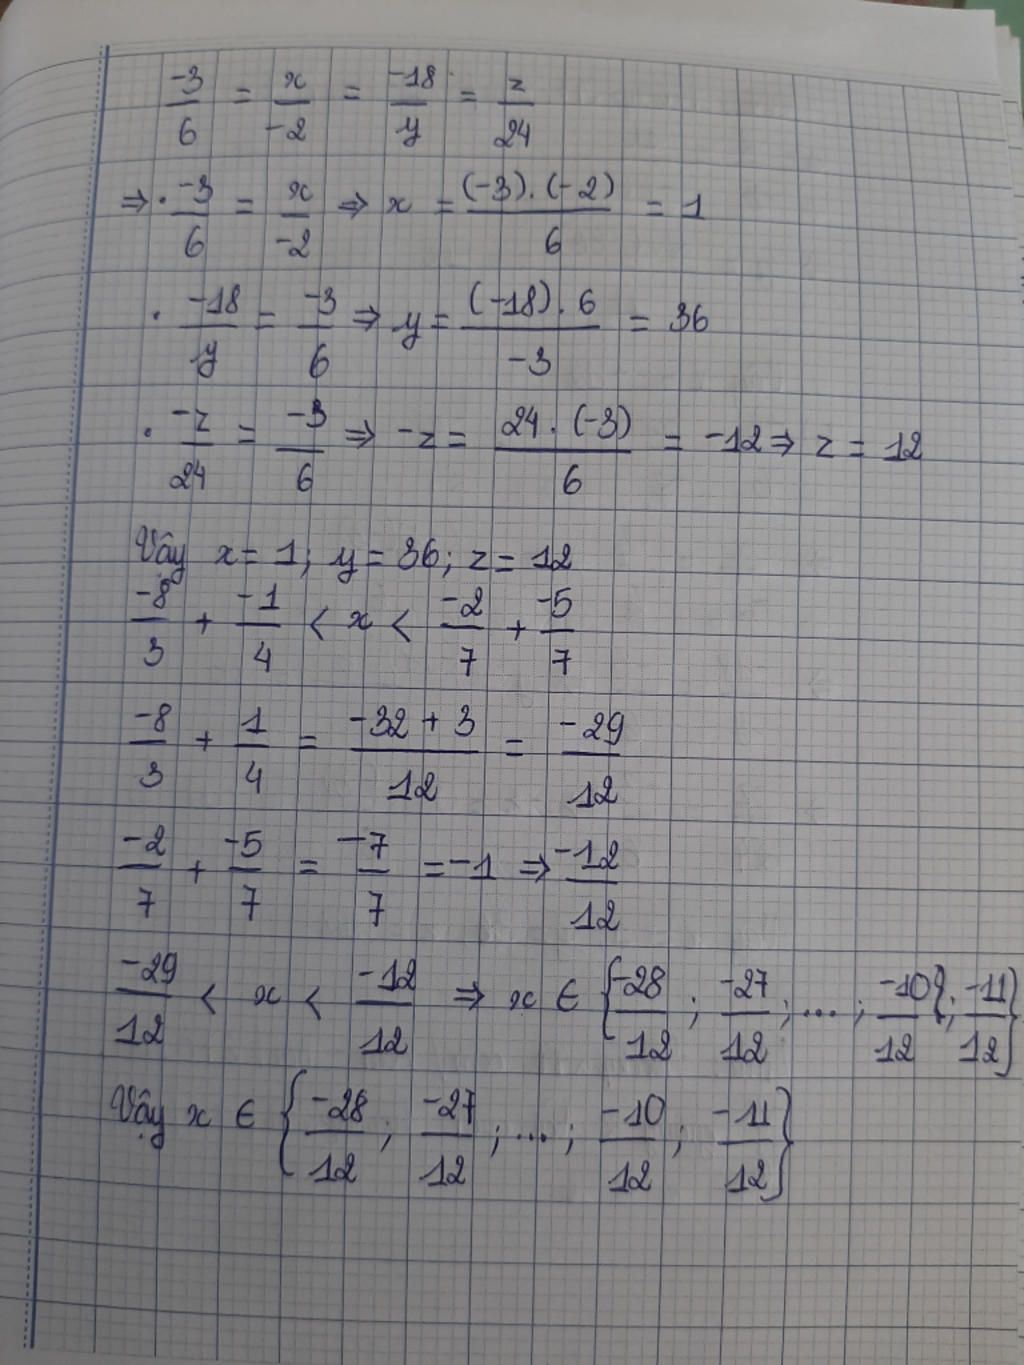 -3/6 = x/-2 = -18/y = z/24
⇒ · -3/6 = x/-2 ⇒ x = (-3).(-2)/6 = 1
· -18/y = -3/6 ⇒ y = (-18).6/-3 = 36
· -z/24 = -3/6 ⇒ -z = 24.(-3)/6 = -12 ⇒ z = 12
Vậy x = 1; y = 36; z = 12
-8/3 + -1/4 < x < -2/7 + -5/7
-8/3 + 1/4 = -32 + 3/12 = -29/12
-2/7 + -5/7 = -7/7 = -1 ⇒ -12/12
-29/12 < x < -12/12 ⇒ x ∈ {-28/12; -27/12; ...; -10/12}; -11/12}
Vậy x ∈ {-28/12; -27/12; ...; -10/12; -11/12}